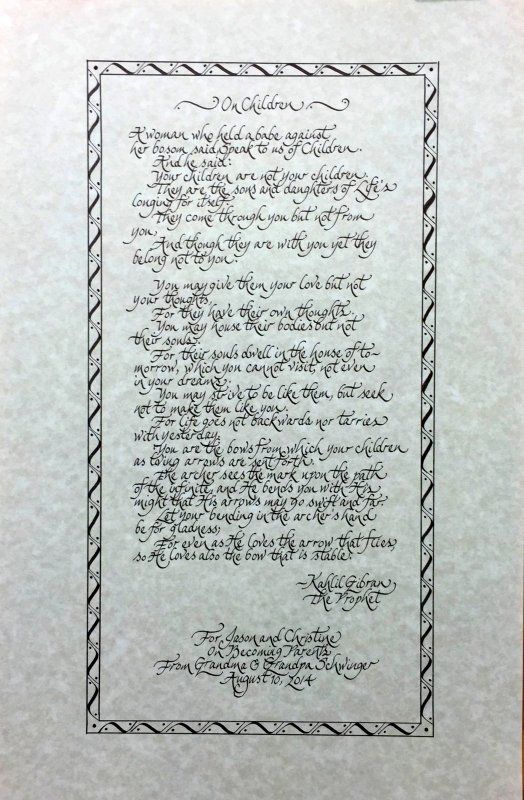 On Children
A woman who held a babe against
her bosom said, Speak to us of Children.
And he said:
Your children are not your children.
They are the sons and daughters of Life's
longing for itself.
They come through you but not from
you,
And though they are with you yet they
belong not to you.
You may give them your love but not
your thoughts,
For they have their own thoughts.
You may house their bodies but not
their souls,
For their souls dwell in the house of to-
morrow, which you cannot visit, not even
in your dreams.
You may strive to be like them, but seek
not to make them like you.
For life goes not backwards nor tarries
with yesterday.
You are the bows from which your children
as living arrows are sent forth.
The archer sees the mark upon the path
of the infinite, and He bends you with His
might that His arrows may go swift and far.
Let your bending in the archer's hand
be for gladness;
For even as He loves the arrow that flies,
so He loves also the bow that is stable.
~Kahlil Gibran
The Prophet
For Jason and Christine
On Becoming Parents
From Grandma & Grandpa Schwinger
August 10, 2014